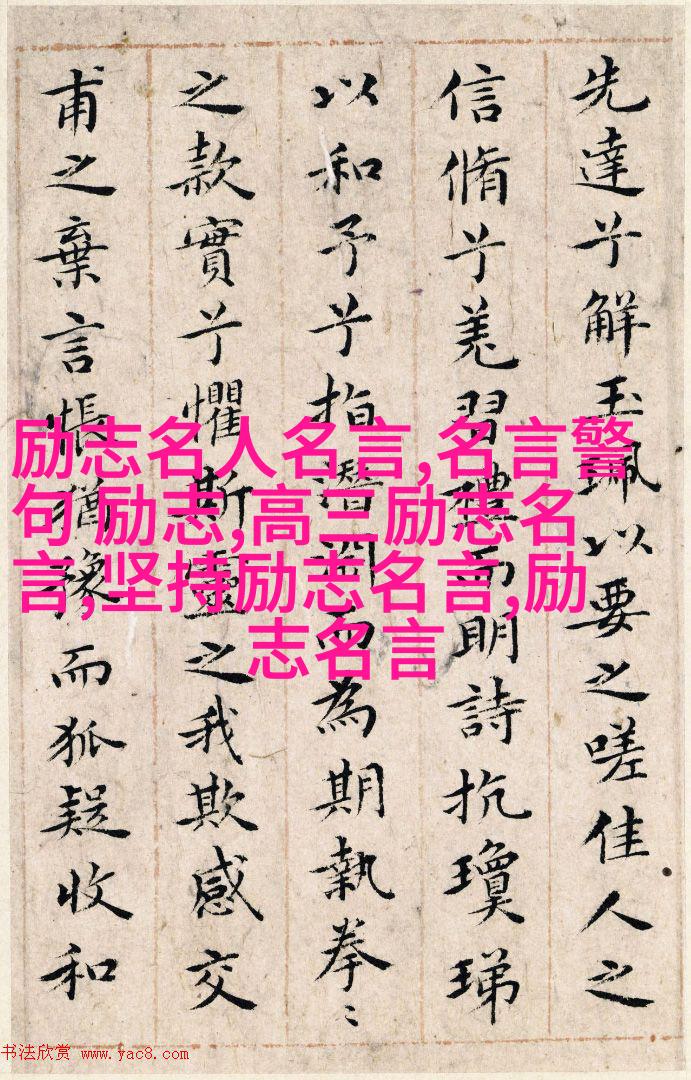 先達兮解玉珮以要之嗟佳人之
信脩兮羌習禮而明詩抗瓊珶
以和予兮指潛淵而為期執拳〻
之款實兮懼斯靈之我欺感交
甫之棄言悵猶豫而狐疑收和
励志名人名言,名言警
句 励志,高三励志名
言,坚持励志名言,励
志名言
书法欣赏 www.yac8.com